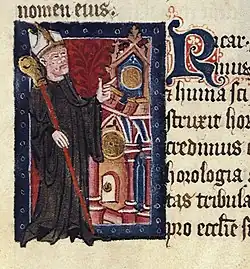 nomen eius.
Ricar
nus
struxit hor
credimus e
horologia
tas tribula
pro ecclie s